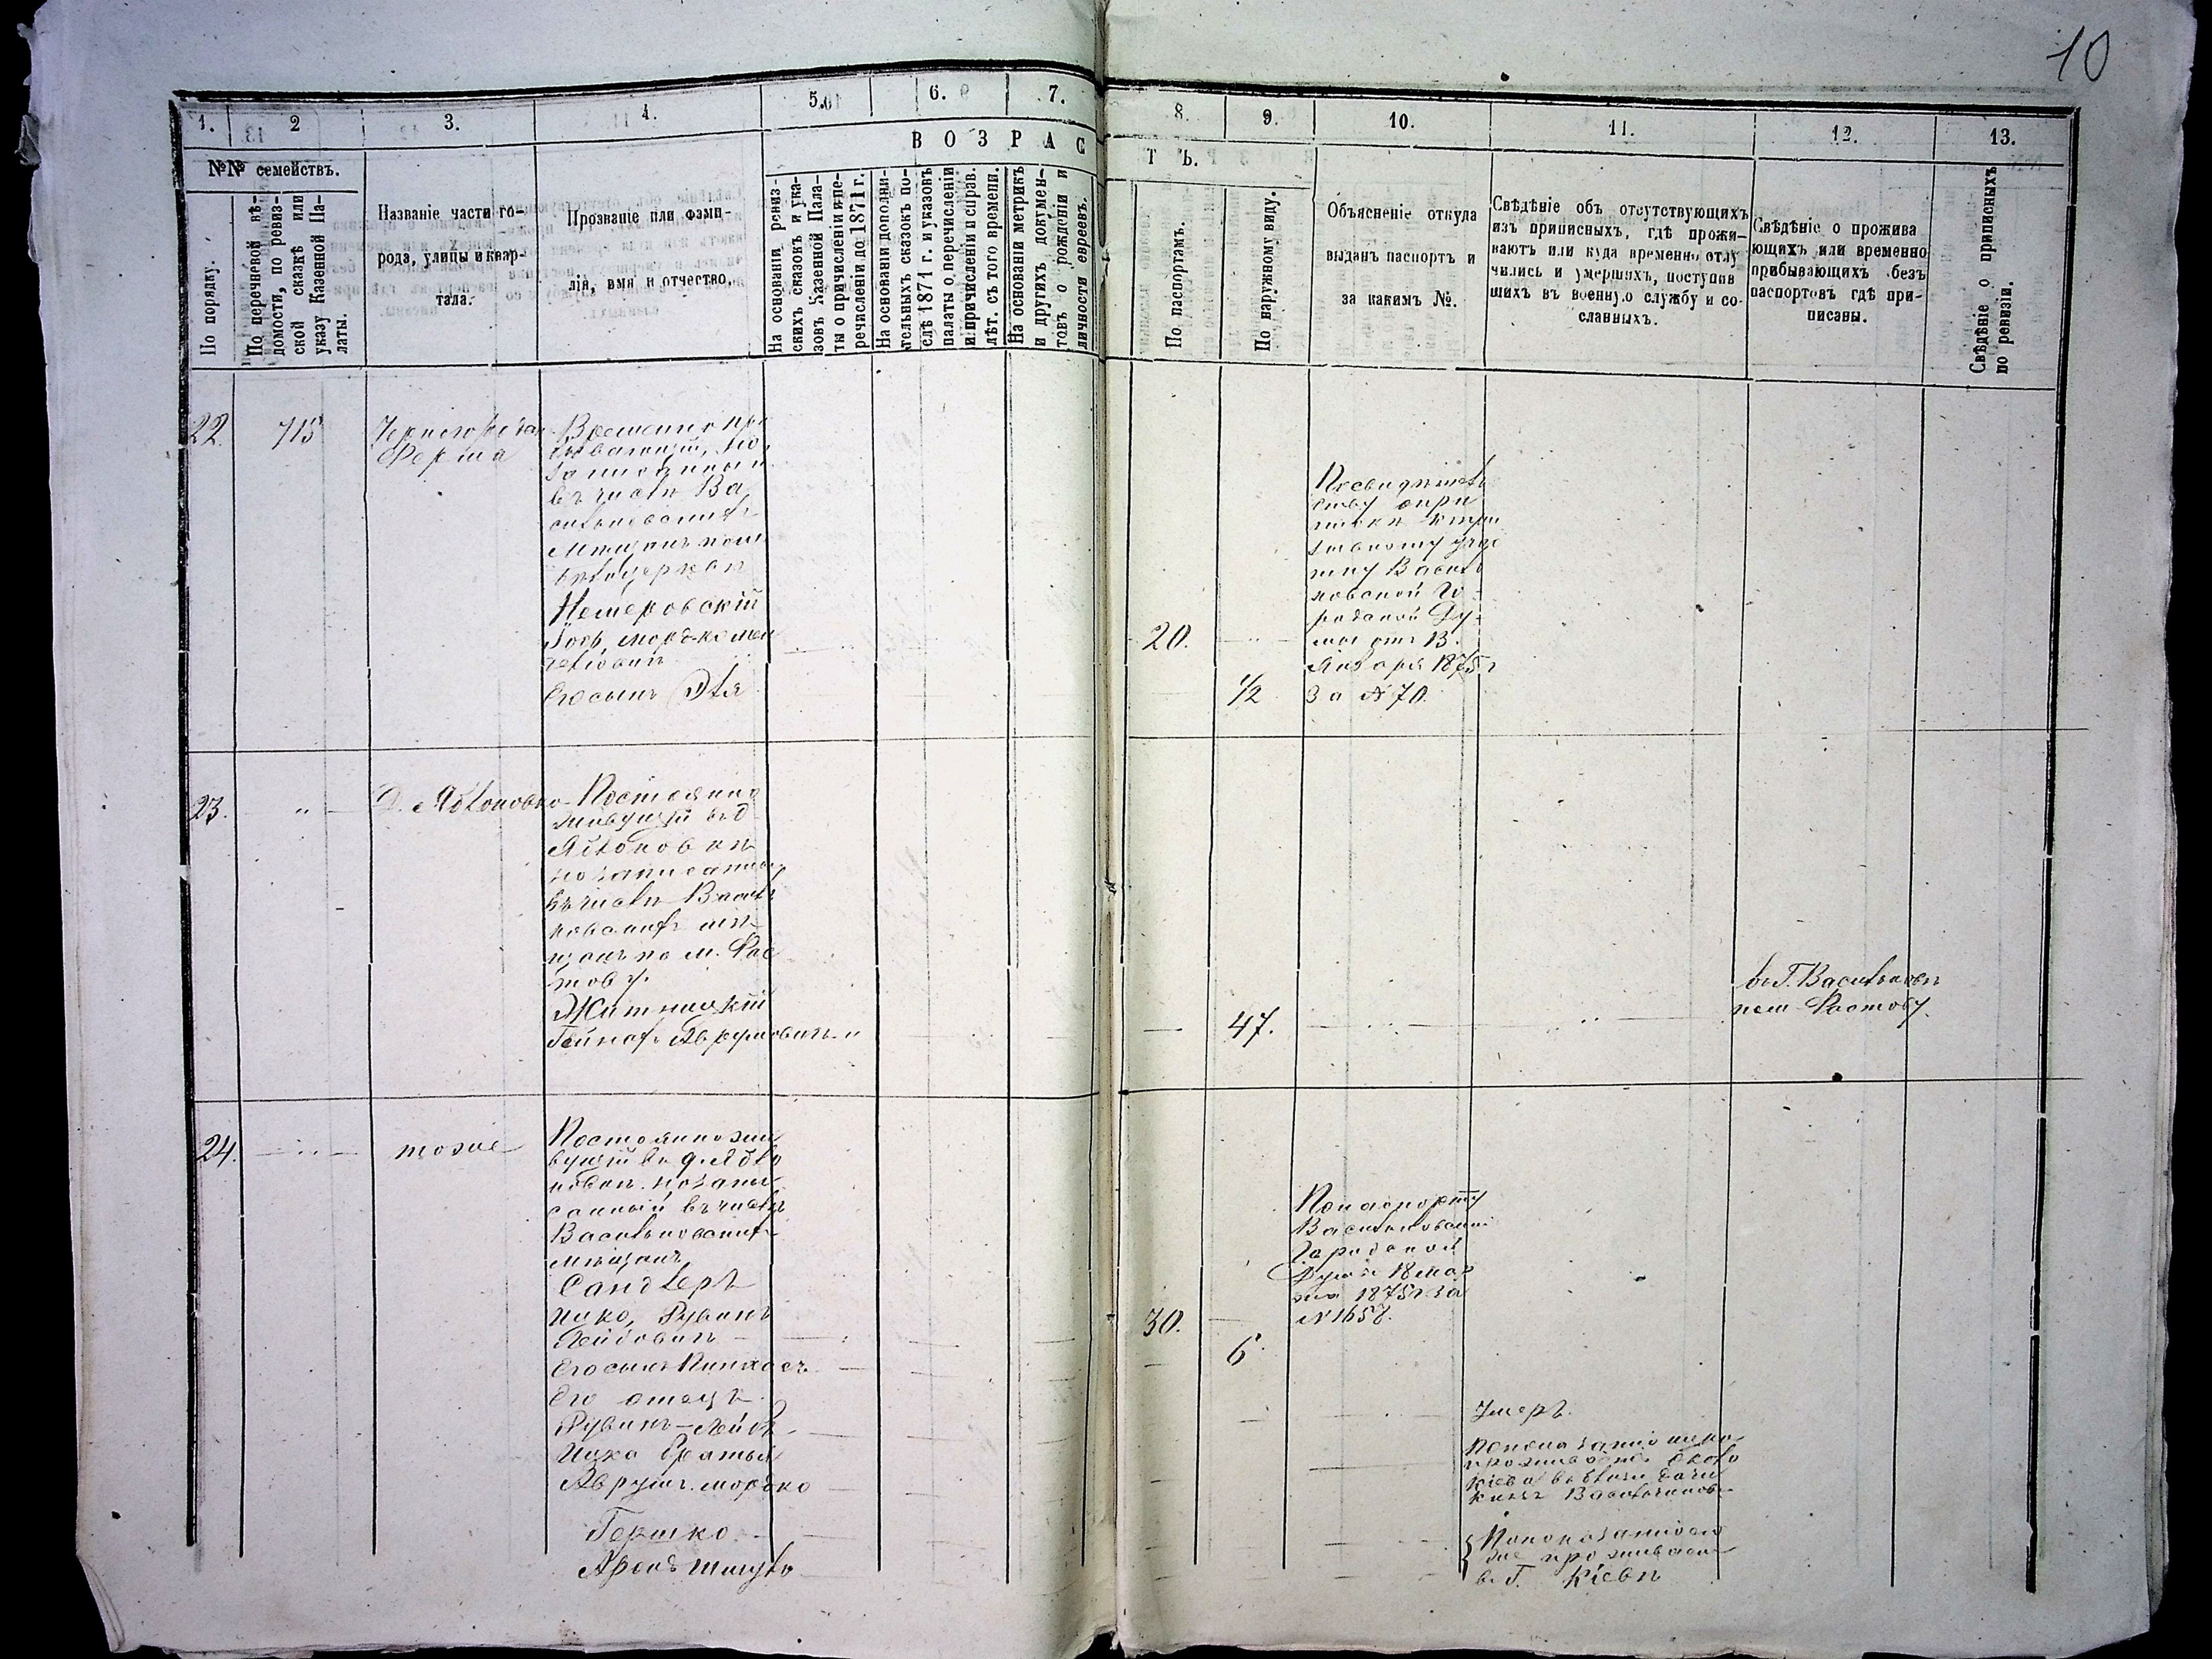 10
1. 2 3. 4. 5. 6. 7. 8. 9. 10. 11. 12. 13.
ВОЗРАСТЪ.
№№ семействъ.
По порядку.
По перечневой вѣ-
домости, по ревиз-
ской сказкѣ или
указу Казенной Па-
латы.
Названіе части го-
рода, улицы и квар-
тала.
Прозваніе или фами-
лія, имя и отчество.
На основаніи ревиз-
скихъ сказокъ и ука-
зовъ Казенной Пала-
ты о причисленіи и пе-
речисленіи до 1871 г.
На основаніи дополни-
тельныхъ сказокъ по-
слѣ 1871 г. и указовъ
палаты о перечисленіи
и причисленіи и справ.
лѣт. съ того времени.
На основаніи метрикъ
и другихъ докумен-
товъ о рожденіи и
личности евреевъ.
По паспортамъ.
По наружному виду.
Объясненіе откуда
выданъ паспортъ и
за какимъ №.
Свѣдѣніе объ отсутствующихъ
изъ приписныхъ, гдѣ прожи-
ваютъ или куда временно отлу
чились и умершихъ, поступив
шихъ въ военную службу и со-
сланныхъ.
Свѣдѣніе о прожива
ющихъ или временно
прибывающихъ безъ
паспортовъ гдѣ при-
писаны.
Свѣдѣніе о приписныхъ
по ревизіи.
22. 715
Ферма
Временно про
живающій, но
записанный
въ числѣ Ва
сильковскихъ
мѣщанъ по м.
Бѣлоцеркви
Немеровскій
Іось Мордко Мен
делiовичъ
Его сынъ Эля
20.
1/2
По свидѣтель
ству о при
пискѣ къ при
зывному учас
тку Василь
ковской Го-
родской Ду-
мы отъ 13
Января 1875 г
За № 70.
23. „
Д. Яблоновка
Постоянно
живущій въ д
Яблоновкѣ
но записанный
въ числѣ Василь
ковскихъ мѣ
щанъ по м. Фас
тову.
Житницкій
Аврумовичъ
47.
въ Г. Васильковѣ
по м. Фастову.
24. „
тоже
Постоянно жи
вущій въ д. Ябло
новкѣ но запи
санный въ числѣ
Васильковскихъ
мѣщанъ
Сандлеръ
Ицко, Рувинъ
Лейбовичъ
Его сынъ Пинхасъ
Его отецъ
Рувинъ-Лейбъ
Ицка братья
Аврумъ-Мордко
Гершко
Аронъ Шмуль
30.
6
По паспорту
Васильковской
Городской
Думы 18 мар
1875 г. за
№ 1657.
Умеръ.
По показанію Ицки
проживаетъ около
Кіева вблизи дачи
князя Васильчикова
По показанію его
же проживаютъ
въ Г. Кіевѣ